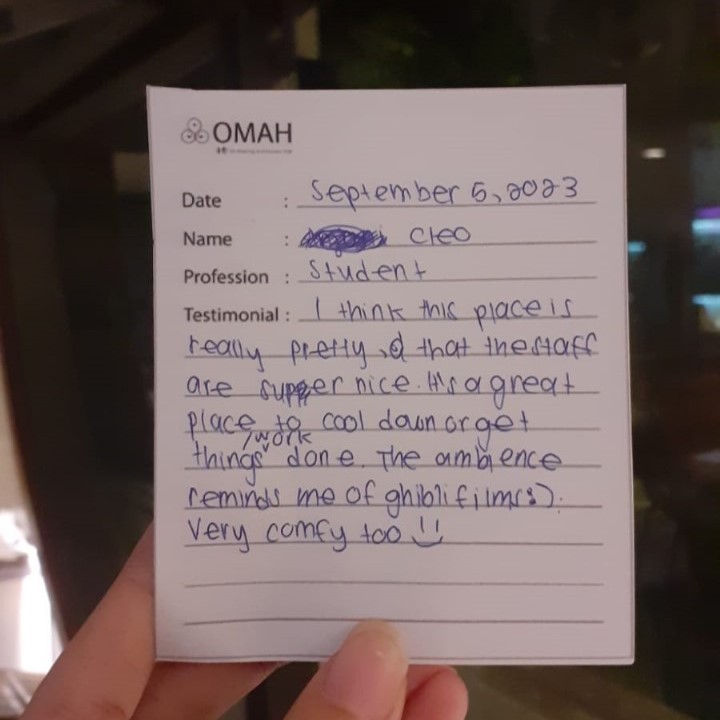 OMAH
Date : September 5, 2023
Name : Cleo
Profession : Student
Testimonial : I think this place is
really pretty, & that the staff
are super nice. It's a great
place to cool down or get
/work
things done. The ambience
reminds me of ghibli film(s).
Very comfy too !!